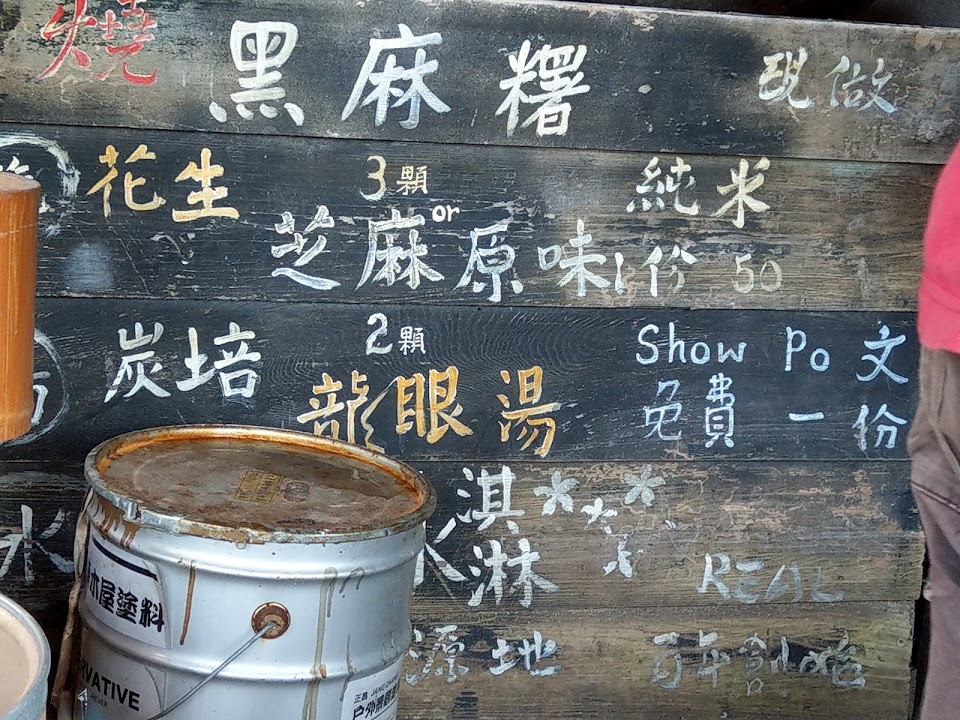 燒 黑麻糬 現做
花生 3顆 純米
芝麻 or 原味 1份 50
炭培 2顆 Show Po文
龍眼湯 免費一份
淇淋
REAL
冰屋塗料
源地 百年創始
RVATIVE
正昌